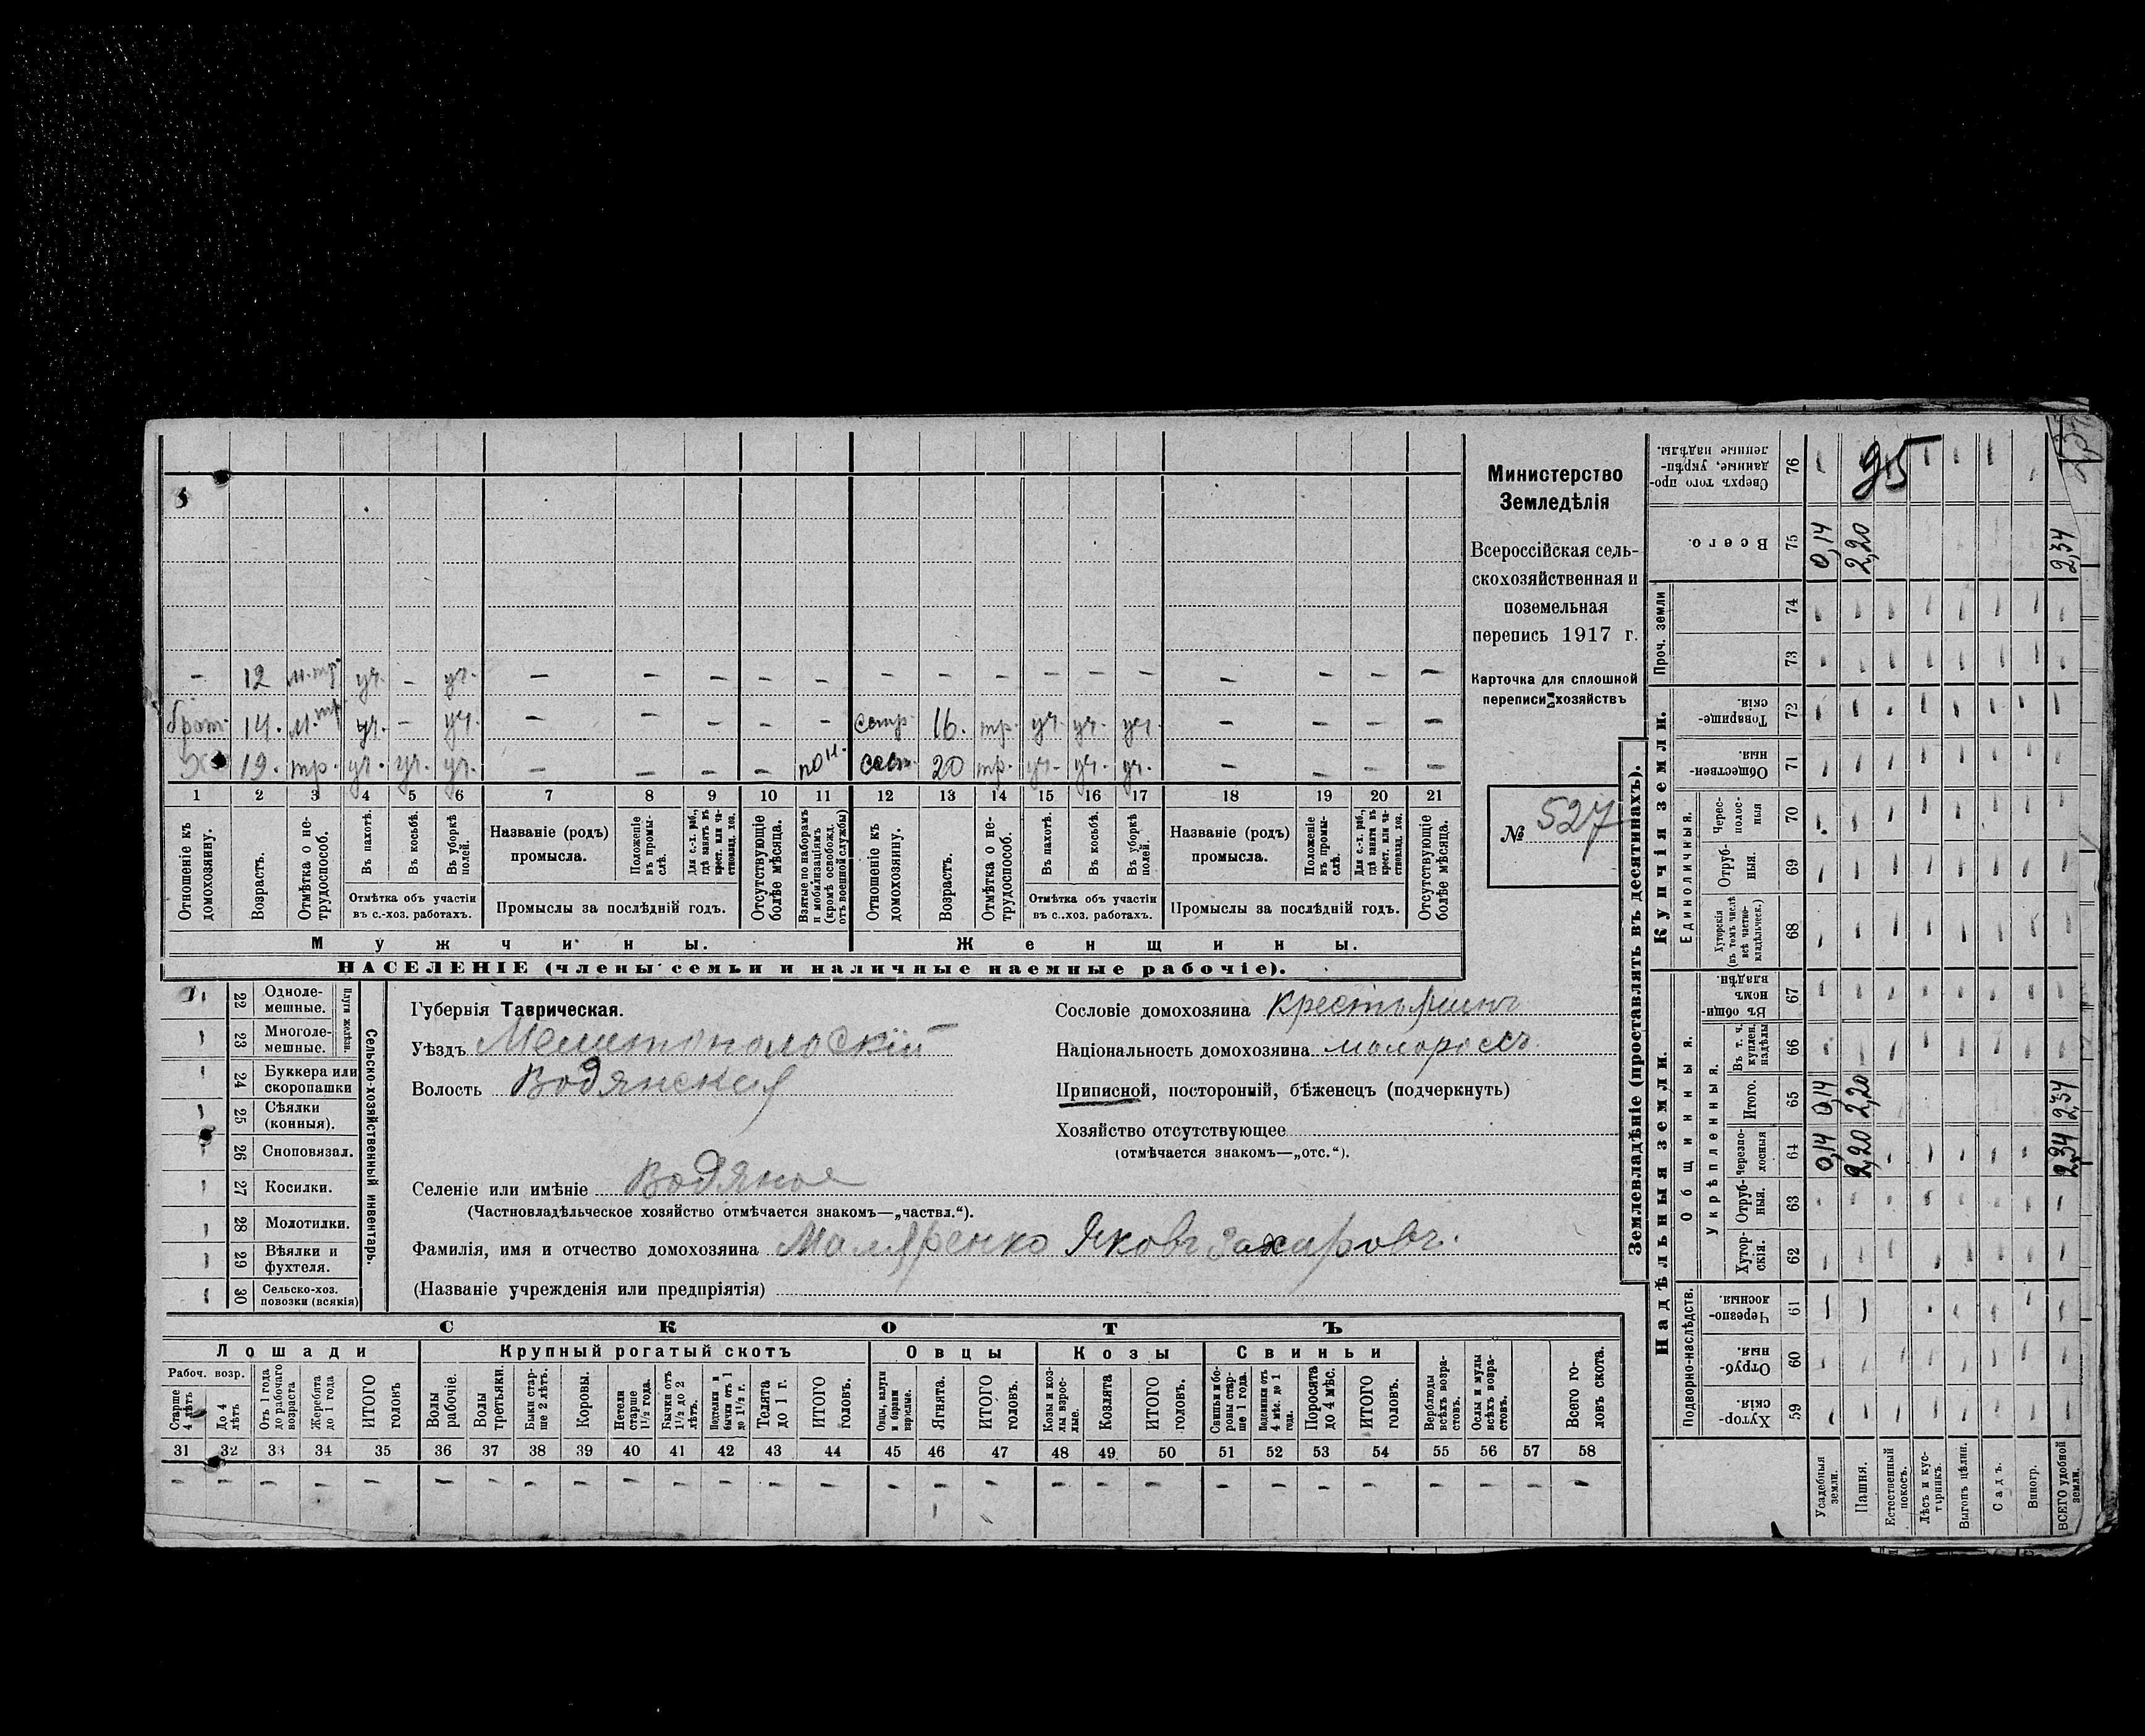 5
- 12 м.тр. уч. - уч. - - - - - - - - - - - - - - - -
брат. 14. м.тр. уч. - уч. - - - - - сестр. 16. тр. уч. уч. уч. - - - -
Хо 19. тр. уч. уч. уч. - - - - пон. сест. 20 тр. уч. уч. уч. - - - -
1 2 3 4 5 6 7 8 9 10 11 12 13 14 15 16 17 18 19 20 21
Отношеніе къ домохозяину.
Возрастъ.
Отмѣтка о не-трудоспособ.
Въ пахотѣ.
Въ косьбѣ.
Въ уборкѣ полей.
Отмѣтка объ участіи
въ с.-хоз. работахъ.
Названіе (родъ)
промысла.
Положеніе въ промы-слѣ.
Для с.-х. раб., гдѣ занятъ въ крест. или ча-стновлад. хоз.
Промыслы за послѣдній годъ.
Отсутствующіе болѣе мѣсяца.
Взятые по наборамъ и мобилизаціямъ (кромѣ освобожд. отъ военной службы)
Отношеніе къ домохозяину.
Возрастъ.
Отмѣтка о не-трудоспособ.
Въ пахотѣ.
Въ косьбѣ.
Въ уборкѣ полей.
Отмѣтка объ участіи
въ с.-хоз. работахъ.
Названіе (родъ)
промысла.
Положеніе въ промы-слѣ.
Для с.-х. раб., гдѣ занята въ крест. или ча-стновлад. хоз.
Промыслы за послѣдній годъ.
Отсутствующіе болѣе мѣсяца.
Мужчины. Женщины.
НАСЕЛЕНІЕ (члены семьи и наличные наемные рабочіе).
Министерство
Земледѣлія
Всероссійская сель-
скохозяйственная и
поземельная
перепись 1917 г.
Карточка для сплошной
переписи хозяйствъ
№ 527
Сельско-хозяйственный инвентарь.
Плуги желѣзн.
22 Одноле-
мешные.
23 Многоле-
мешные.
24 Буккера или
скоропашки
25 Сѣялки
(конныя).
26 Сноповязал.
27 Косилки.
28 Молотилки.
29 Вѣялки и
фухтеля.
30 Сельско-хоз.
повозки (всякія)
Губернія Таврическая.
Уѣздъ Мелитопольскій
Волость Водянская
Сословіе домохозяина крестьянинъ
Національность домохозяина малороссъ.
Приписной, посторонній, бѣженецъ (подчеркнуть)
Хозяйство отсутствующее
(отмѣчается знакомъ—„отс.“).
Селеніе или имѣніе Водяное
(Частновладѣльческое хозяйство отмѣчается знакомъ—„частвл.“).
Фамилія, имя и отчество домохозяина Маляренко Яковъ Захаровъ.
(Названіе учрежденія или предпріятія)
СКОТЪ
Лошади Крупный рогатый скотъ Овцы Козы Свиньи
Рабоч. возр.
Старше 4 лѣтъ
До 4 лѣтъ
Отъ 1 года до рабочаго возраста
Жеребята до 1 года
ИТОГО головъ
Волы рабочіе.
Волы третьяки.
Быки стар-ше 2 лѣтъ.
Коровы.
Нетели старше 1½ года.
Бычки отъ 1½ до 2 лѣтъ.
Подтелки и бычки отъ 1 до 1½ г.
Телята до 1 г.
ИТОГО головъ.
Овцы, валухи и бараны взрослые.
Ягнята.
ИТОГО головъ.
Козы и коз-лы взрос-лые.
Козлята
ИТОГО головъ.
Свиньи и бо-ровы стар-ше 1 года.
Подсвинки отъ 4 мѣс. до 1 года.
Поросята до 4 мѣс.
ИТОГО головъ.
Верблюды всѣхъ возра-стовъ.
Ослы и мулы всѣхъ возра-стовъ.
Всего го-ловъ скота.
31 32 33 34 35 36 37 38 39 40 41 42 43 44 45 46 47 48 49 50 51 52 53 54 55 56 57 58
- - - - - - - - - - - - - - - - - - - - - - - - - - - -
Землевладѣніе (проставлять въ десятинахъ).
Надѣльныя земли.
Купчія земли.
Проч. земли
Подворно-наслѣдств.
Общинныя.
Укрѣпленныя.
Единоличныя.
Хутор-скія. 59
Отруб-ныя. 60
Черезпо-лосныя 61
Хутор-скія. 62
Отруб-ныя. 63
Черезпо-лосныя 64 0,14 2,20 2,34
Итого. 65 0,14 2,20 2,34
Въ т. ч. куплен. надѣлы 66
Въ общи-номъ владѣн. 67
Хуторскія (въ томъ числѣ всѣ частно-владѣльческ.) 68
Отруб-ныя. 69
Черес-полос-ныя 70
Обществен-ныя. 71
Товарище-скія. 72
73
74
Всего. 75 0,14 2,20 2,34
Сверхъ того про-данные, укрѣп-ленные надѣлы. 76
95
Усадебныя земли.
Пашня.
Естественный покосъ.
Лѣсъ и кус-тарникъ.
Выгонъ цѣлин.
Садъ.
Виногр.
ВСЕГО удобной земли.